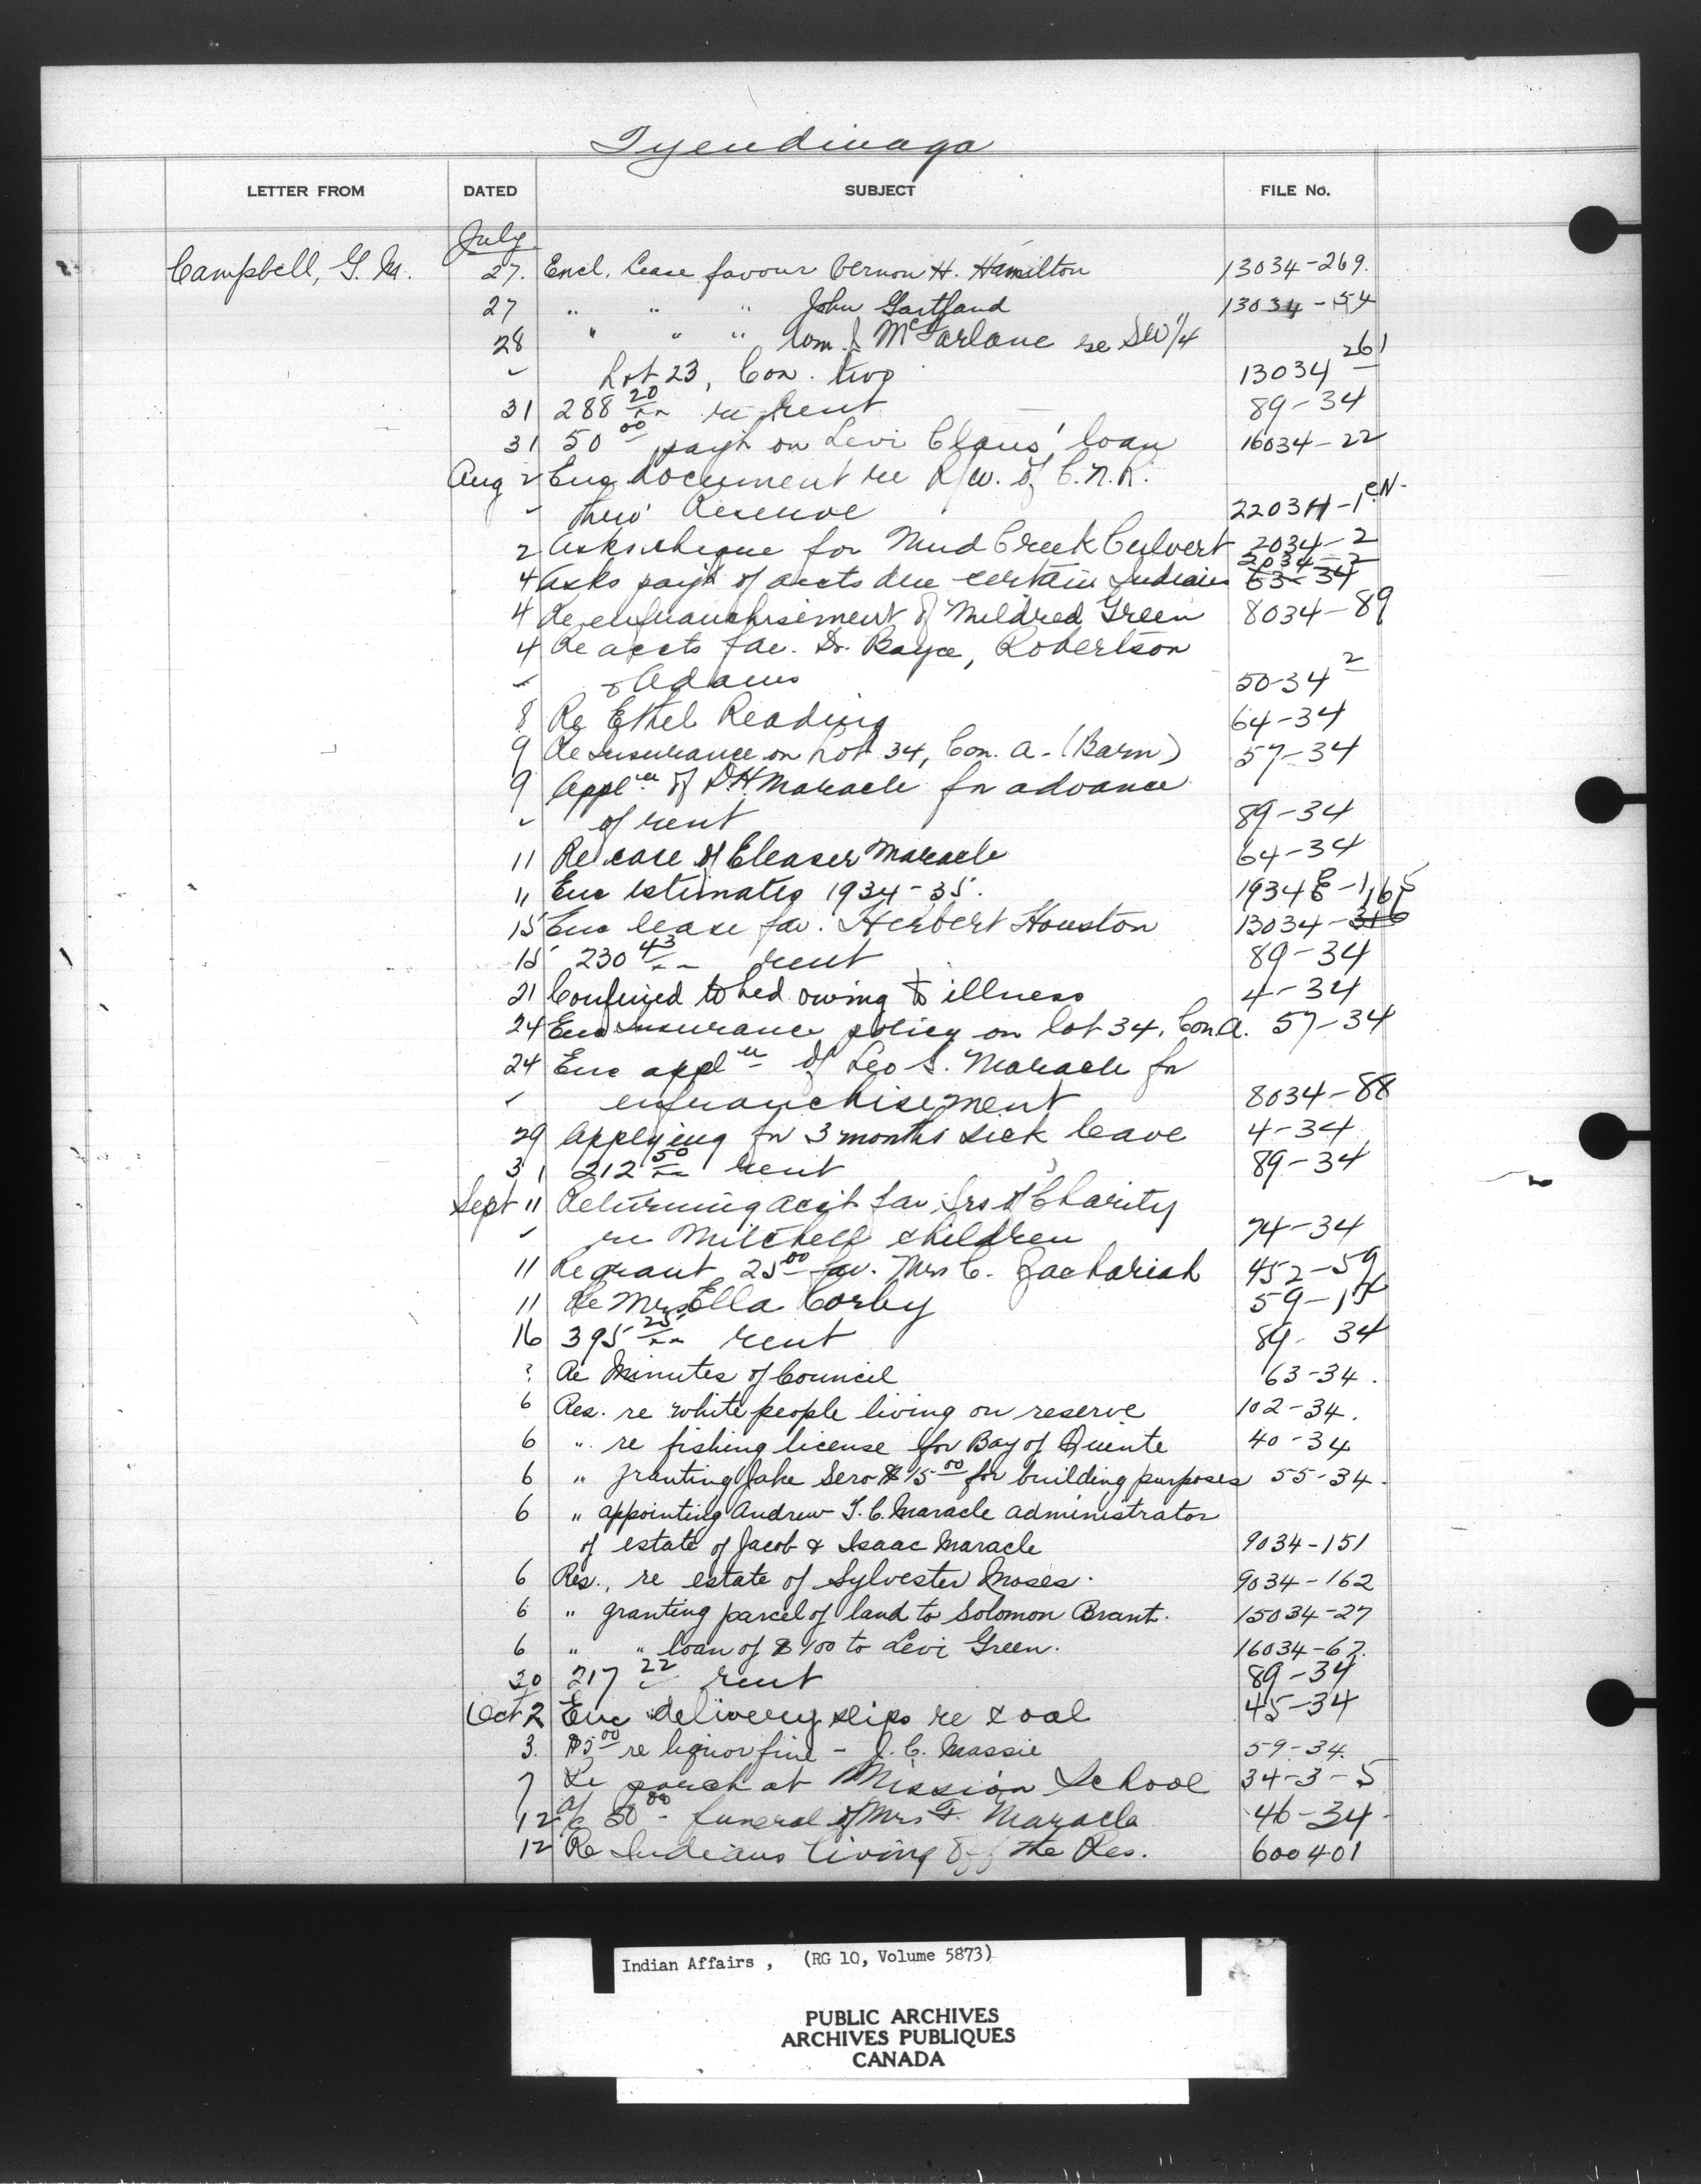 Tyendinaga
LETTER FROM DATED SUBJECT FILE No.
July
Campbell, G. M. 27. Encl. lease favour Vernon H. Hamilton 13034-269.
27 " " " John Gartland 13034-54
28 " " " Wm J McFarlane re SW 1/4
" Lot 23, Con. two 13034-261
31 288 20/xx re rent 89-34
31 50 00 paym't on Levi Claus' loan 16034-22
Aug 2 Enc document re R/w. of C.N.R.
" thro' Reserve 22034-1
2 Asks cheque for Mud Creek Culvert 2034-2
4 Asks paym't of accts due certain Indians 2034-2 63-34
4 Re enfranchisement of Mildred Green 8034-89
4 Re accts fav. Dr. Boyce, Robertson
" & Adams 50-34-2
8 Re Ethel Reading 64-34
9 Re Insurance on Lot 34, Con. A-(Barn) 57-34
9 Appl'n of D.H. Maracle for advance
" of rent 89-34
11 Re case of Eleaser Maracle 64-34
11 Enc estimates 1934-35. 1934 E-1
15 Enc lease fav. Herbert Houston 13034-165
15 230 43/xx rent 89-34
21 Confined to bed owing to illness 4-34
24 Enc insurance policy on lot 34, Con A. 57-34
24 Enc appl'n of Leo S. Maracle for
" enfranchisement 8034-88
29 Applying for 3 months sick leave 4-34
31 212 50/xx rent 89-34
Sept 11 Returning acc't fav Srs of Charity
" re Mitchell children 74-34
11 Re grant 25 00 fav. Mrs C. Zachariah 452-59
11 Re Mrs Ella Corby 59-15
16 395 25/xx rent 89-34
? Re Minutes of Council 63-34.
6 Res. re white people living on reserve 102-34.
6 " re fishing license for Bay of Quinte 40-34
6 " granting Jake Sero $15 00 for building purposes 55-34.
6 " appointing Andrew T. C. Maracle administrator
of estate of Jacob & Isaac Maracle 9034-151
6 Res., re estate of Sylvester Moses. 9034-162
6 " granting parcel of land to Solomon Brant. 15034-27
6 " " loan of $100 to Levi Green. 16034-67.
30 217 22 rent 89-34
Oct 2 Enc delivery slips re coal 45-34
3. $5 00 re liquor fine - J. C. Massie 59-34.
7 Re porch at Mission School 34-3-5
12 a/c 50 00 - funeral of Mrs F. Maracle 46-34
12 Re Indians living off the Res. 600401
Indian Affairs , (RG 10, Volume 5873)
PUBLIC ARCHIVES
ARCHIVES PUBLIQUES
CANADA